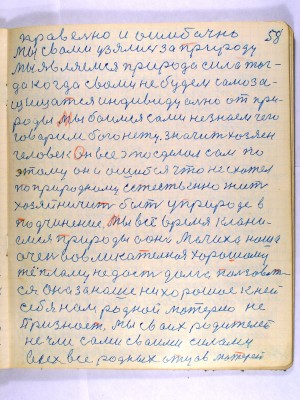 правелно и ошибачно 58
мы свами узялись за природу
мы являемся природа силь тог-
да когда свами не будем само за-
щищатся индивидуално от при-
роды Мы боимся сами незнаем чего
говарим бога нету, значит хозяен
человек Он все это сделал сам по
этому он и ошибся что не схотел
по природному естественно жить
хозяйничить быть у природе в
подчинение, Мы всё время клани-
емся природы а она Мачиха наша
очен вовликательная хорошому
тёплому, недость дома, ползоват
ся Она за наше нихорошое к ней
себя нам родной матерю не
признает, Мы сваих родителей
не чли сами сваими силами
всех все родных отцов матерей